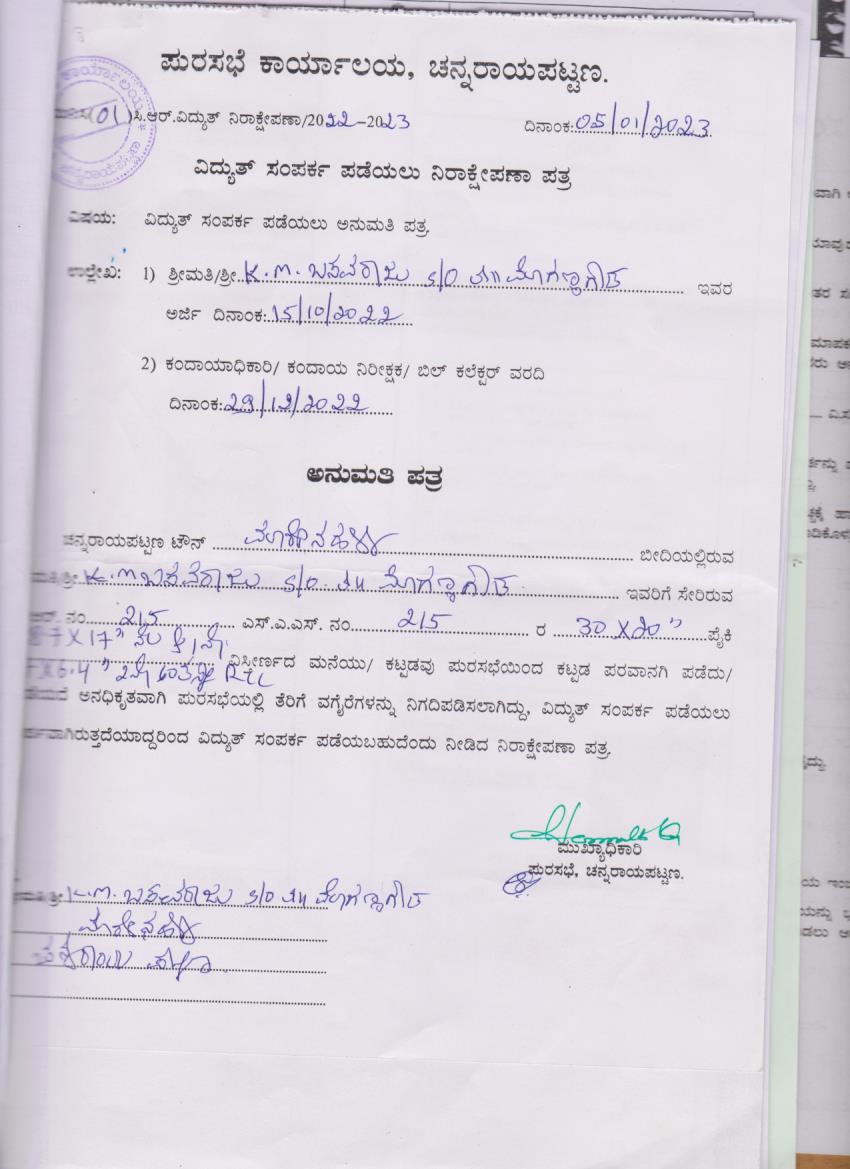 ಪುರಸಭೆ ಕಾರ್ಯಾಲಯ, ಚನ್ನರಾಯಪಟ್ಟಣ.
(01)ಸಿ.ಆರ್.ವಿದ್ಯುತ್ ನಿರಾಕ್ಷೇಪಣಾ/2022-2023 ದಿನಾಂಕ:05/01/2023
ವಿದ್ಯುತ್ ಸಂಪರ್ಕ ಪಡೆಯಲು ನಿರಾಕ್ಷೇಪಣಾ ಪತ್ರ
ವಿಷಯ: ವಿದ್ಯುತ್ ಸಂಪರ್ಕ ಪಡೆಯಲು ಅನುಮತಿ ಪತ್ರ
ಉಲ್ಲೇಖ: 1) ಶ್ರೀಮತಿ/ಶ್ರೀ K.M. ಬಸವರಾಜು S/O ಮೊಗಣ್ಣಾಗೌಡ ಇವರ
ಅರ್ಜಿ ದಿನಾಂಕ:15/10/2022
2) ಕಂದಾಯಾಧಿಕಾರಿ/ ಕಂದಾಯ ನಿರೀಕ್ಷಕ/ ಬಿಲ್ ಕಲೆಕ್ಟರ್ ವರದಿ
ದಿನಾಂಕ:29/12/2022
ಅನುಮತಿ ಪತ್ರ
ಚನ್ನರಾಯಪಟ್ಟಣ ಟೌನ್ ಬೀದಿಯಲ್ಲಿರುವ
ಮತಿ/ಶ್ರೀ K.M ಬಸವರಾಜು S/O. ಮೊಗಣ್ಣಾಗೌಡ ಇವರಿಗೆ ಸೇರಿರುವ
ಆರ್. ನಂ. 215 ಎಸ್.ಎ.ಎಸ್. ನಂ. 215 ರ 30 X 20" ಪೈಕಿ
X 17"
X 6.4" RCC ವಿಸ್ತೀರ್ಣದ ಮನೆಯು/ ಕಟ್ಟಡವು ಪುರಸಭೆಯಿಂದ ಕಟ್ಟಡ ಪರವಾನಗಿ ಪಡೆದು/
ಅನಧಿಕೃತವಾಗಿ ಪುರಸಭೆಯಲ್ಲಿ ತೆರಿಗೆ ವಗೈರೆಗಳನ್ನು ನಿಗದಿಪಡಿಸಲಾಗಿದ್ದು, ವಿದ್ಯುತ್ ಸಂಪರ್ಕ ಪಡೆಯಲು
ವಿದ್ಯುತ್ ಸಂಪರ್ಕ ಪಡೆಯಬಹುದೆಂದು ನೀಡಿದ ನಿರಾಕ್ಷೇಪಣಾ ಪತ್ರ
ಮುಖ್ಯಾಧಿಕಾರಿ
ಪುರಸಭೆ, ಚನ್ನರಾಯಪಟ್ಟಣ.
ಮತಿ/ಶ್ರೀ K.M. ಬಸವರಾಜು S/O ಮೊಗಣ್ಣಾಗೌಡ